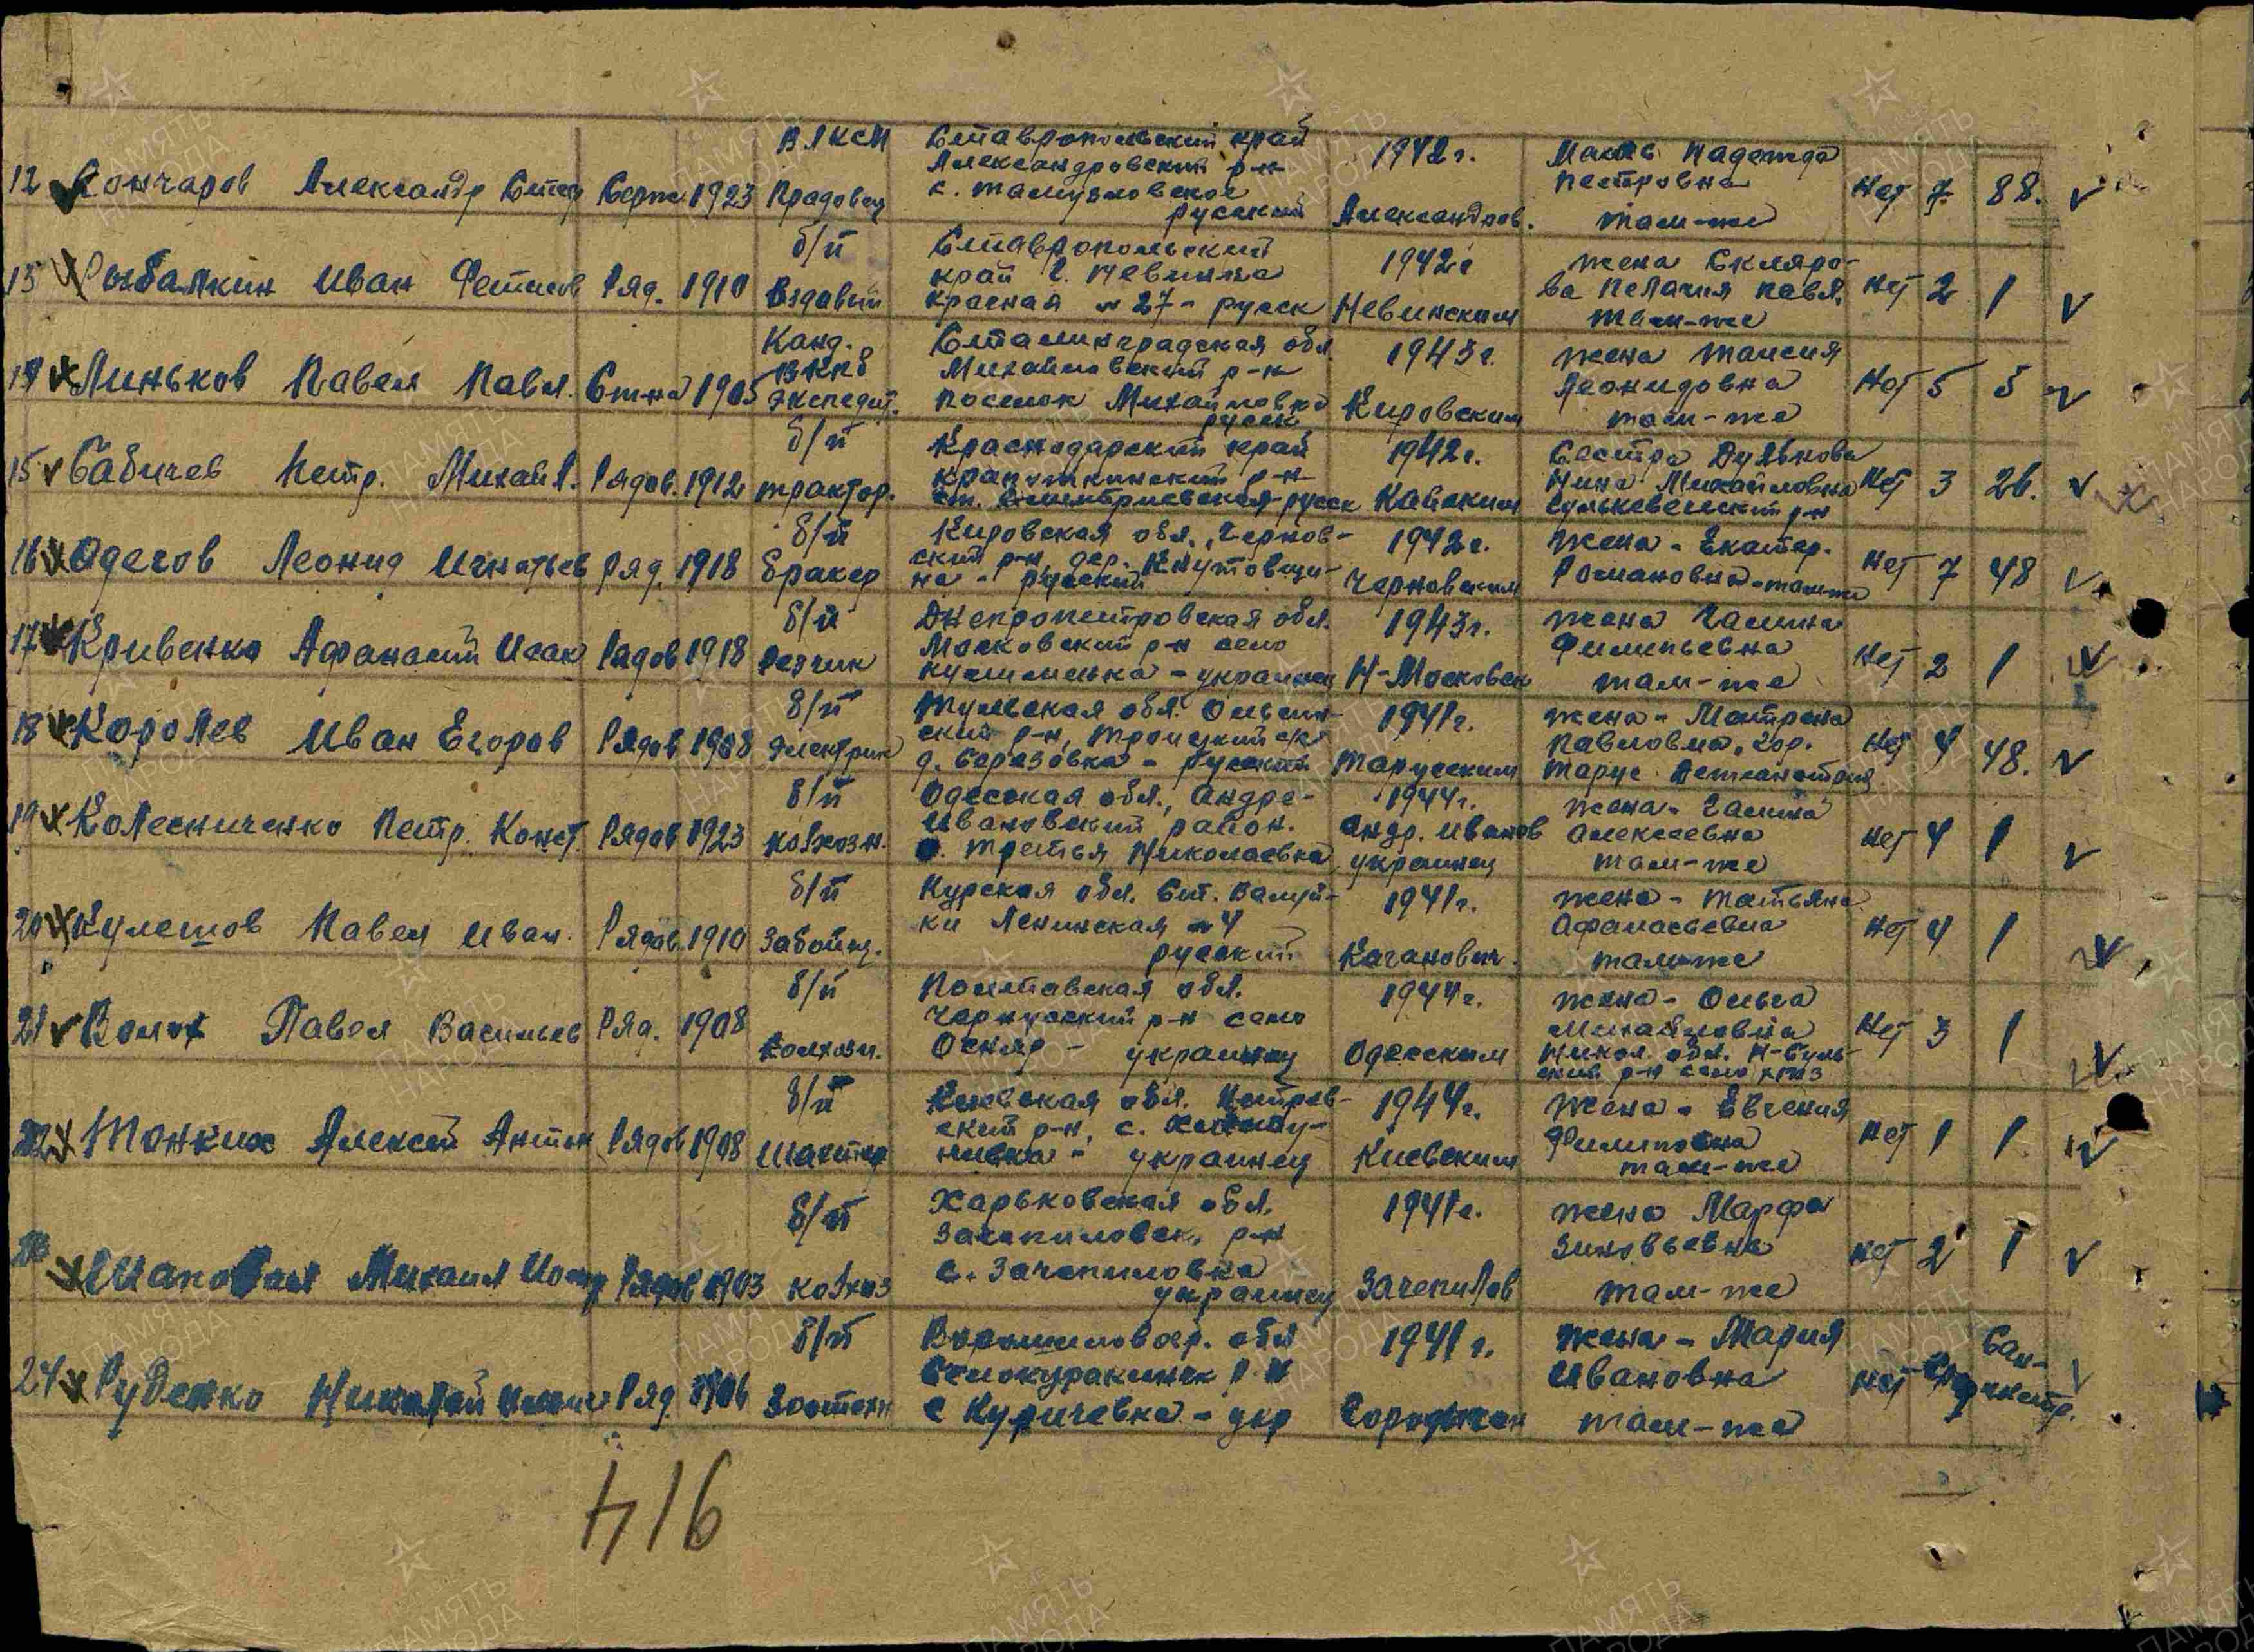 12 Гончаров Александр Степ Серж 1923 ВЛКСМ Ставропольский край 1942 г. Мать Надежда
Александровский р-н Петровна
Прадовец с. русский Александров. там-же Нет 7 88.
13 Рыбалкин Иван Фетисов Ряд. 1910 б/п Ставропольский 1942 г жена Скляро-
край г. Невинка ва Пелагия Павл.
Ездовый Красная № 27 - русск Невинским там-же Нет 2 1
14 Линьков Павел Павл. Ст-на 1905 Канд. Сталинградская обл. 1943 г. жена Таисия
ВКПб Михайловский р-н Леонидовна
экспедит. поселок Михайловка Кировским там-же Нет 5 5
русск
15 Бабичев Петр. Михайл. Рядов. 1912 б/п Краснодарский край 1942 г. Сестра
Кропоткинский р-н Нина Михайловна
трактор. ст. Дмитриевская русск Кавским р-н Нет 3 26.
16 Одегов Леонид Игнатьев Ряд. 1918 б/п Кировская обл., Чернов- 1942 г. жена - Екатер.
ский р-н, дер. Кнутовщи- Романовна - там-же
бракер на - русский Черновским Нет 7 48
17 Кривенко Афанасий Исак Рядов 1918 б/п Днепропетровская обл. 1943 г. жена Галина
Московский р-н село Филипьевна
резчик - украинец Н-Московск там-же Нет 2 1
18 Королев Иван Егоров Рядов 1908 б/п Тульская обл. 1941 г. жена - Матрена
ский р-н, Троицкий с/с Павловна, гор.
электрик д. Березовка - русский Тарусским Тарус Нет 4 48.
19 Колесниченко Петр. Конст. Рядов 1923 б/п Одесская обл., Андре- 1944 г. жена - Галина
Ивановский район. Андр. Иванов Алексеевна
колхозн. с. Третья Николаевка украинец там-же Нет 4 1
20 Кулешов Павел Иван. Рядов. 1910 б/п Курская обл. Ст. Валуй- 1941 г. жена - Татьяна
ки Ленинская № 4 Афанасьевна
забойщ. русский Каганович. там-же Нет 4 1
21 Волох Павел Васильев Ряд. 1908 б/п Полтавская обл. 1944 г. жена - Ольга
Чернусский р-н село Михайловна
колхозн. - украинец Одесским Никол. обл. Н-Буг-
ский р-н село Нет 3 1
22 Тонких Алексей Антон Рядов 1908 б/п Киевская обл. 1944 г. жена - Евгения
ский р-н, с. Филиповна
шахтер - украинец Киевским там-же Нет 1 1
23 Шаповал Михаил Рядов 1903 б/п Харьковская обл. 1941 г. жена Марфа
Зачепиловск. р-н Зиновьевна
колхоз с. Зачепиловка Зачепилов там-же Нет 2 1
украинец
24 Руденко Николай Ряд. 1906 б/п Ворошиловгр. обл 1941 г. жена - Мария
Белокуракинск р-н Ивановна Сан-
зоотехн с Куричевка - укр там-же Нет инстр.
416